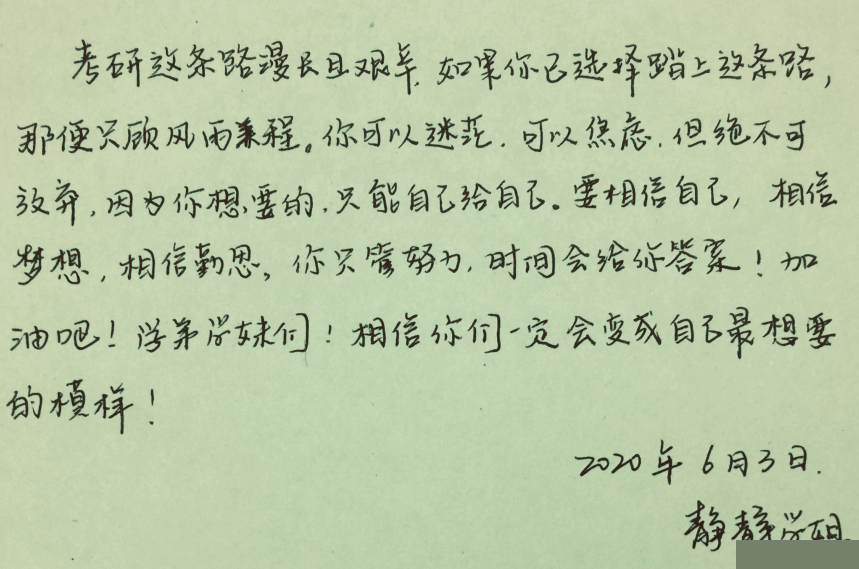 考研这条路漫长且艰辛，如果你已选择踏上这条路，
那便只顾风雨兼程。你可以迷茫，可以焦虑，但绝不可
放弃，因为你想要的，只能自己给自己。要相信自己，相信
梦想，相信勤思，你只管努力，时间会给你答案！加
油吧！学弟学妹们！相信你们一定会变成自己最想要
的模样！
2020年6月3日.
静静学姐